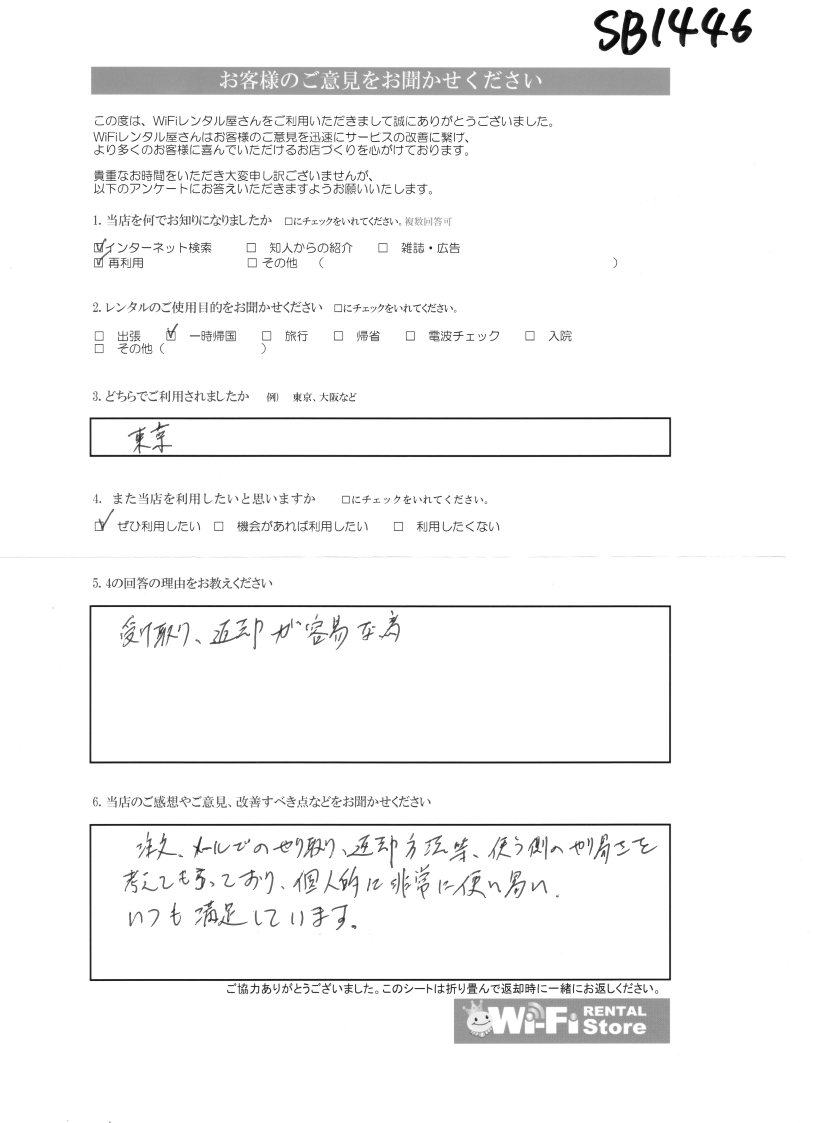 SB1446
お客様のご意見をお聞かせください
この度は、WiFiレンタル屋さんをご利用いただきまして誠にありがとうございました。
WiFiレンタル屋さんはお客様のご意見を迅速にサービスの改善に繋げ、
より多くのお客様に喜んでいただけるお店づくりを心がけております。
貴重なお時間をいただき大変申し訳ございませんが、
以下のアンケートにお答えいただきますようお願いいたします。
1. 当店を何でお知りになりましたか □にチェックをいれてください。複数回答可
☑インターネット検索 □ 知人からの紹介 □ 雑誌・広告
☑再利用 □ その他 ( )
2. レンタルのご使用目的をお聞かせください □にチェックをいれてください。
□ 出張 ☑ 一時帰国 □ 旅行 □ 帰省 □ 電波チェック □ 入院
□ その他 ( )
3. どちらでご利用されましたか 例) 東京、大阪など
東京
4. また当店を利用したいと思いますか □にチェックをいれてください。
☑ ぜひ利用したい □ 機会があれば利用したい □ 利用したくない
5. 4の回答の理由をお教えください
受け取り、返却が容易な為
6. 当店のご感想やご意見、改善すべき点などをお聞かせください
注文、メールでのやり取り、返却方法等、使う側のやり易さを
考えてもらっており、個人的に非常に使い易い.
いつも満足しています。
ご協力ありがとうございました。このシートは折り畳んで返却時に一緒にお返しください。
Wi-Fi RENTAL Store